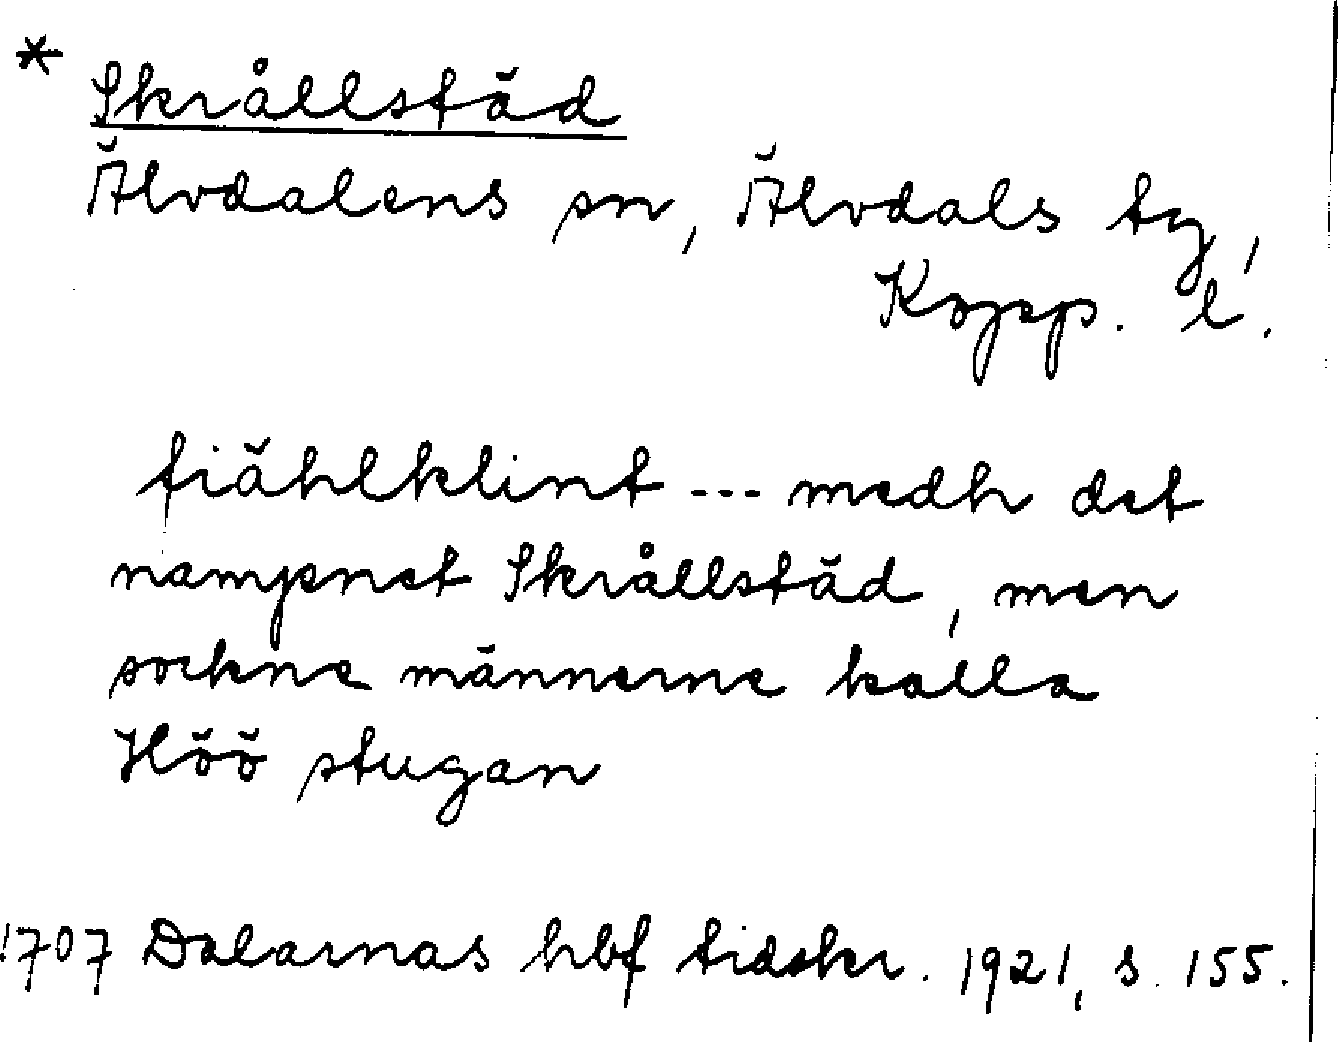 * Skrållstäd
Älvdalens sn, Älvdals tg,
Kopp. l.
fiählklint --- medh det
nampnet Skrållstäd, men
sockne männerne kalla
Höö stugan
1707 Dalarnas hbf tidskr. 1921, s. 155.